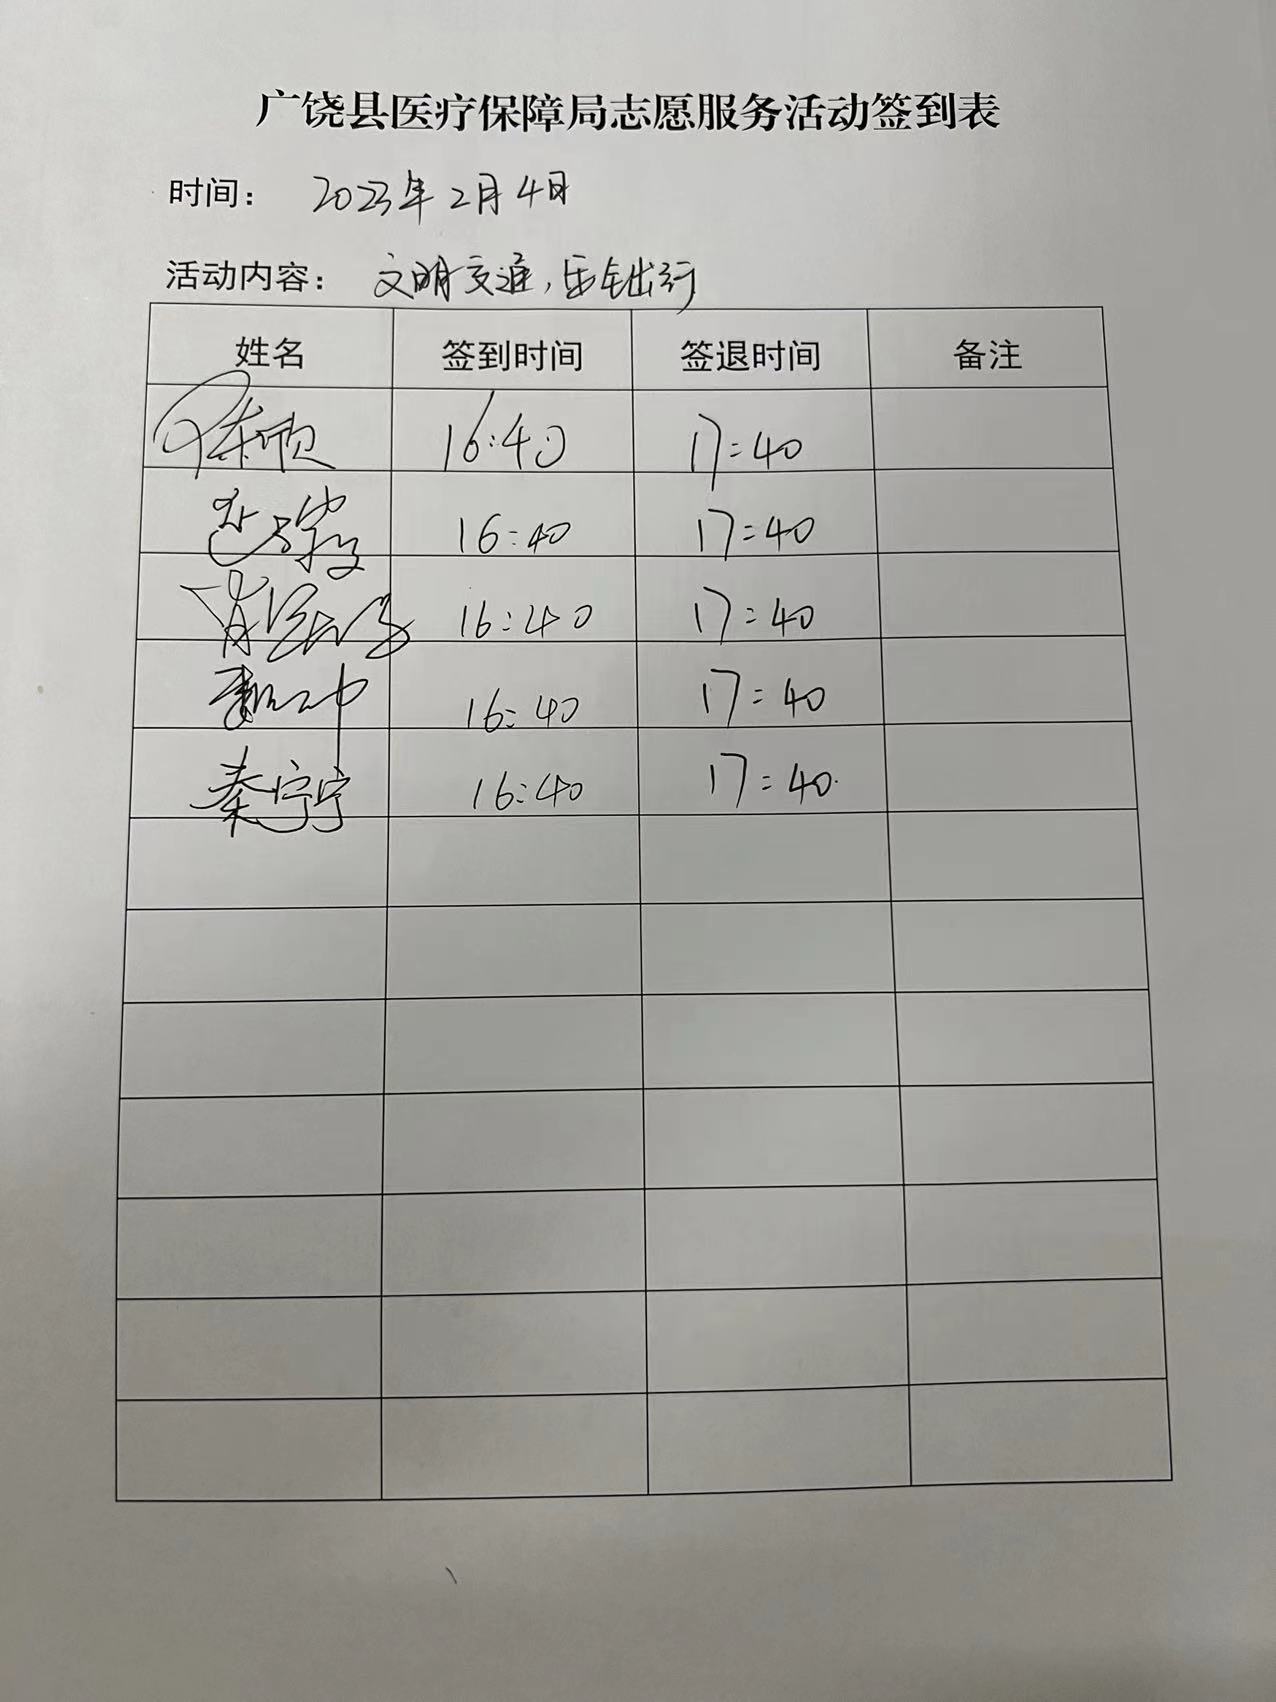 广饶县医疗保障局志愿服务活动签到表
时间： 2023年2月4日
活动内容： 文明交通，安全出行
姓名 签到时间 签退时间 备注
16:40 17:40
16:40 17:40
16:40 17:40
16:40 17:40
秦宁宁 16:40 17:40